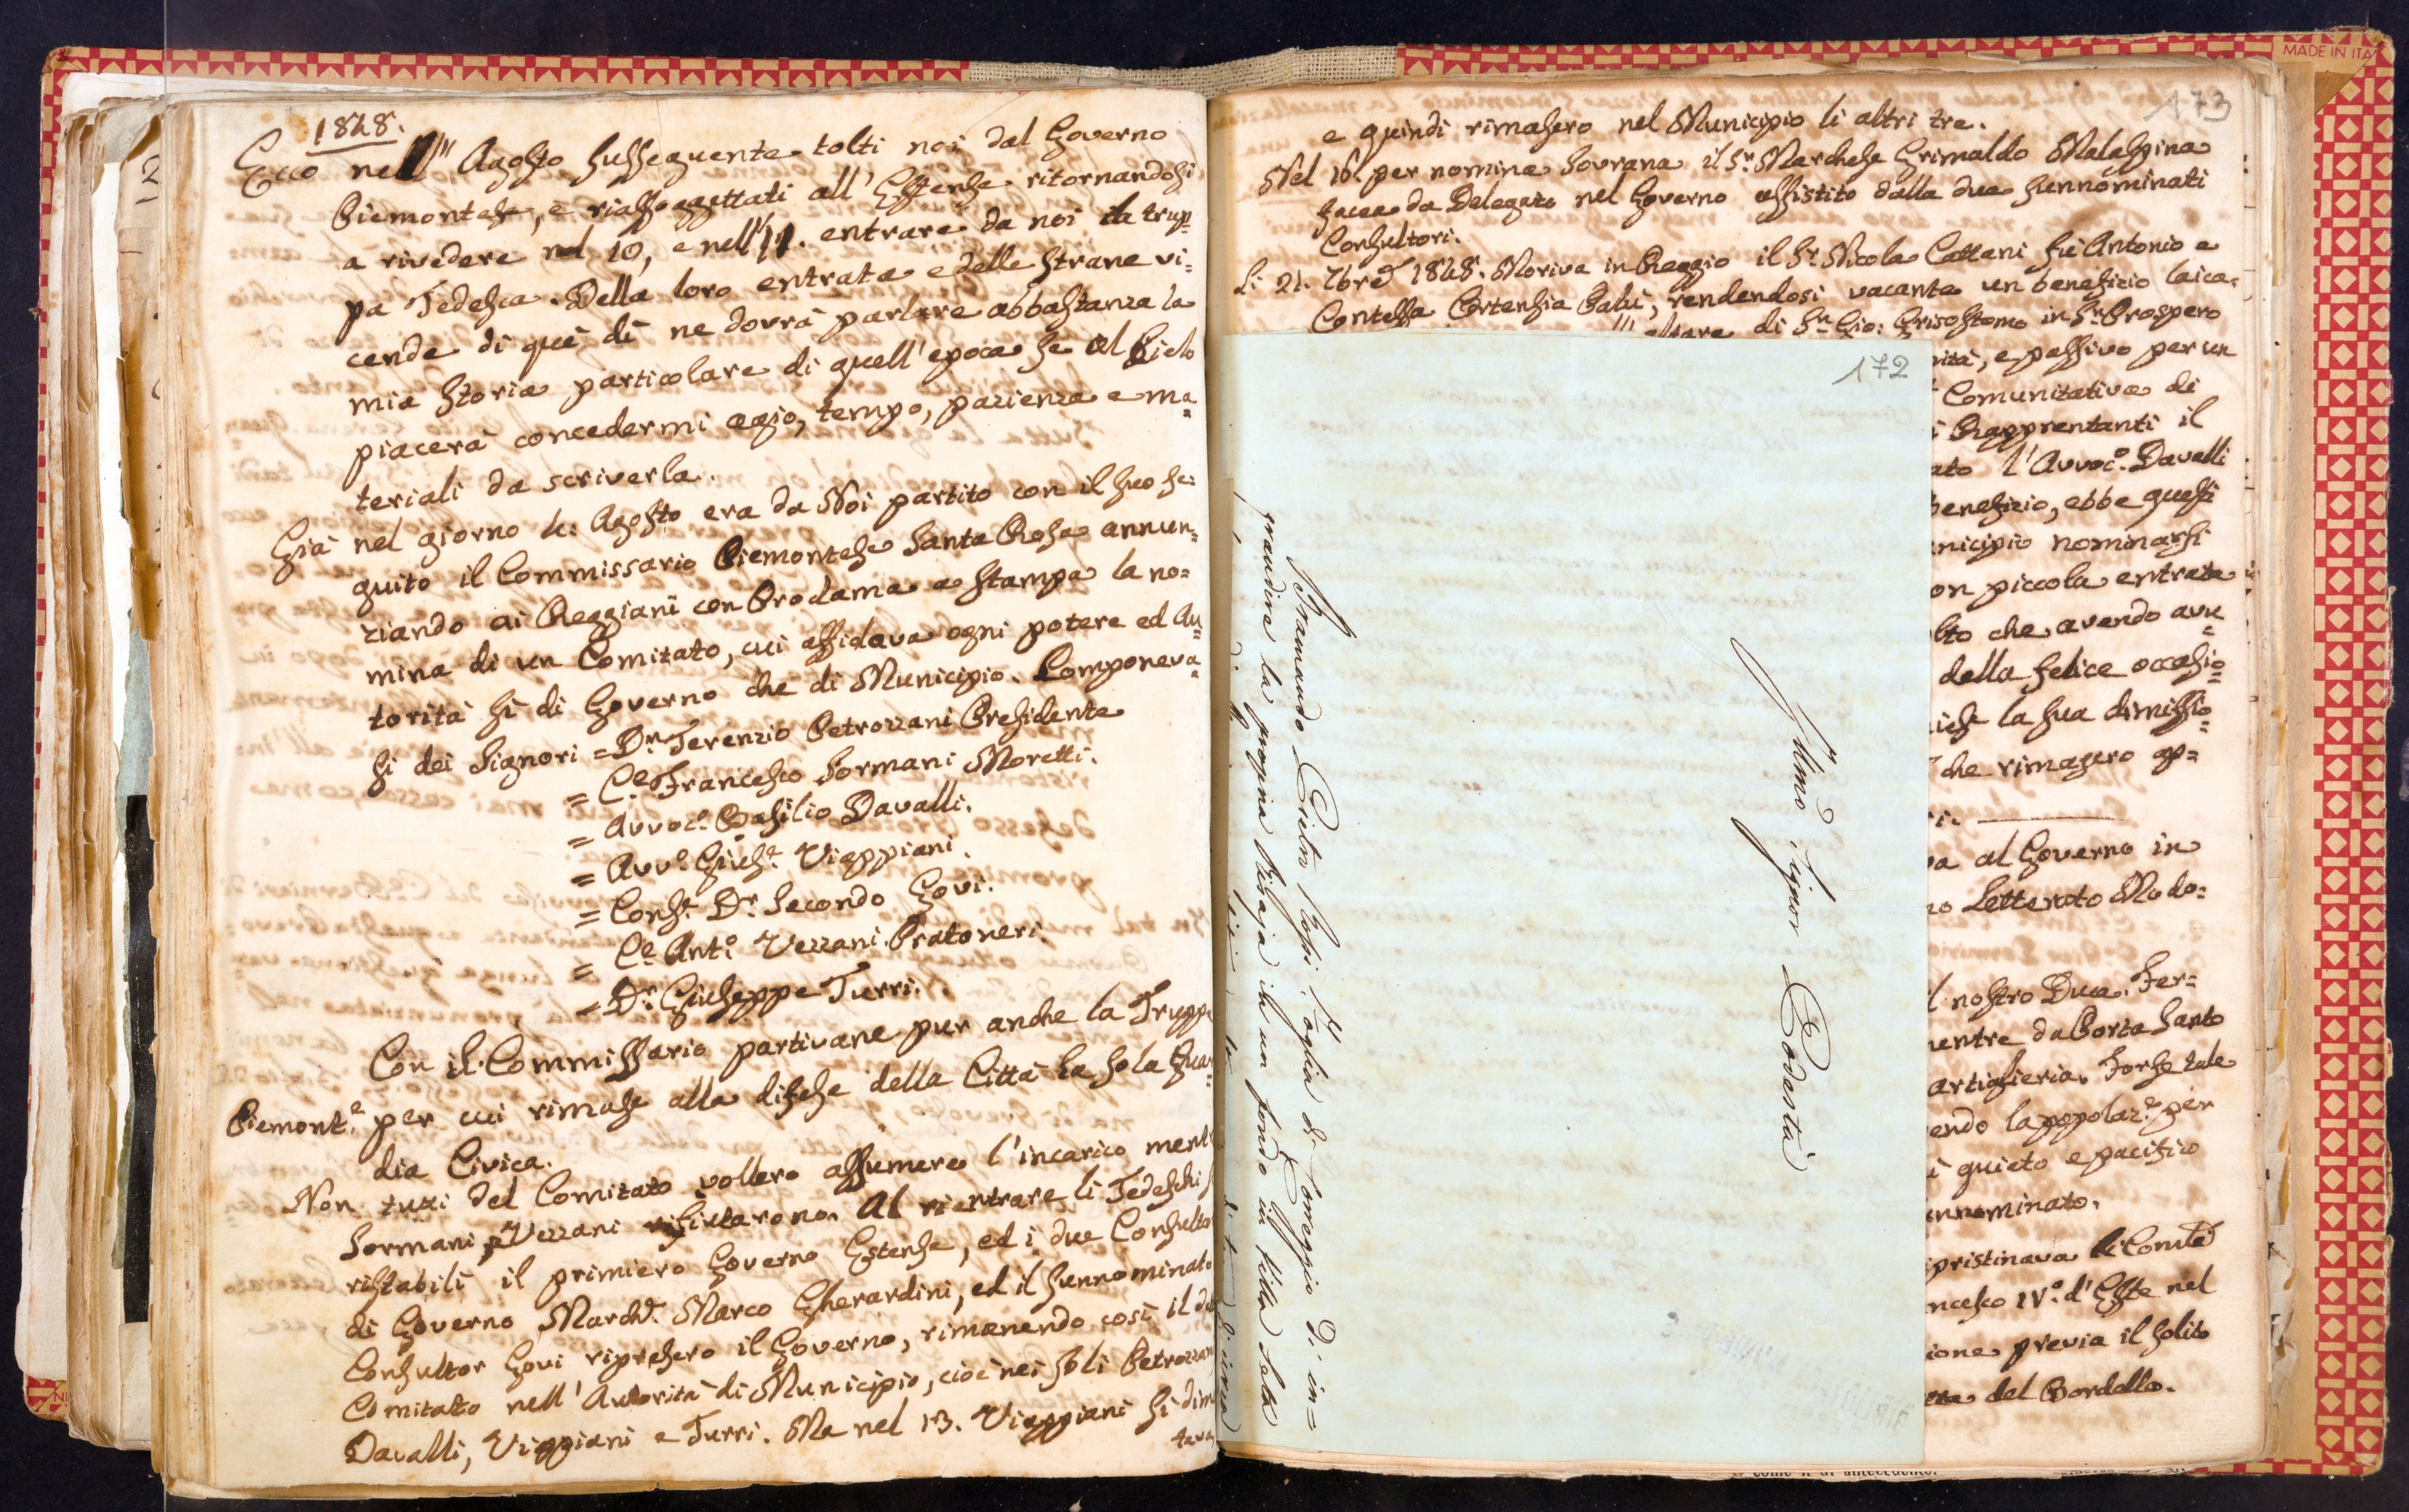 1848.
Ecco nell'' Agosto susseguente tolti noi dal Governo
Piemontese, e riassoggettati all' Estense ritornandosi
a rivedere nel 10, e nell' 11. entrare da noi la trup=
pa Tedesca. Della loro entrata e delle strane vi=
cende di què dì ne dovrà parlare abbastanza la
mia storia particolare di quell' epoca se il Cielo
piacerà concedermi agio, tempo, pazienza e ma=
teriali da scriverla.
Già nel giorno 4: Agosto era da Noi partito con il suo se=
guito il Commissario Piemontese Santa Rosa annun=
ziando ai Reggiani con Proclama a stampa la no=
mina di un Comitato, cui affidava ogni potere ed Au=
torità sì di Governo che di Municipio. Componeva=
si dei Signori = Dr. Terenzio Petrozzani Presidente
= Ce. Francesco Sormani Moretti.
= Avvoc.o Basilio Davalli.
= Avv.o Giuse. Viappiani.
= Cons.r Dr. Secondo Govi.
= Ce. Ant.o Vezzani Pratoneri.
= Dr. Giuseppe Turri.
Con il Commissario partivane pur anche la Trupp
Piemont.e per cui rimase alla difese della Città la sola Guar=
dia Civica.
Non tutti del Comitato vollero assumere l'incarico ment
Sormani e Vezzani rifiutarono. Al rientrare li Tedeschi s
ristabilì il primiero Governo Estense, ed i due Consulto
di Governo March.e Marco Gherardini, ed il sunnominato
Consultor Govi ripresero il Governo, rimanendo così il d
Comitato nell' Autorità di Municipio, cioè nei soli Petrozzan
Davalli, Viappiani e Turri. Ma nel 13. Viappiani si dim
teva
173
e quindi rimasero nel Municipio li altri tre.
Nel 16. per nomina Sovrana il Sr. Marchese Grimaldo Malaspina
facea da Delegato nel Governo assistito dalla due sunnominati
Consultori.
Li 21. 7bre 1848. Moriva in Reggio il Sr. Nicola Cattani fù Antonio e
Contessa Ortensia Calvi, rendendosi vacante un benefizio laica=
altare di Sn. Gio: Grisostomo in Sn. Prospero
nità, e passivo per un
Comunitativa di
i Rapprentanti il
ato l'Avvoc.o Davalli
benefizio, ebbe questi
unicipio nominarsi
on piccola entrata
lto che avendo avu=
della felice occasio=
iese la sua dimissio=
che rimasero ap=
ri.
va al Governo in
no Letterato Modo=
l nostro Duca, Fer=
mentre da Porta Santo
artiglieria. Forse tale
endo la popolaz.e per
ì quieto e pacifico
unnominato.
ipristinava li Comita
ncesco IV.o d'Este nel
ione previa il solito
tta del Bordello.
172
Illmo Signor Podestà
Bramando Pietro Rossi Foglia di Correggio d'in=
grandire la propria bibaja in un fondo in Villa Sesta